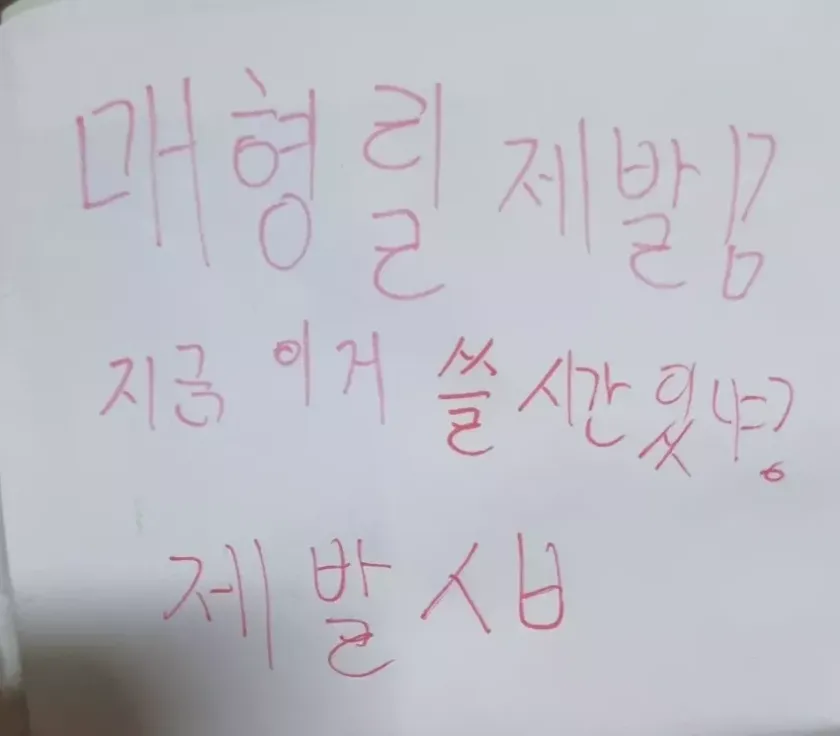 매형릴 제발!?
지금 이거 쓸 시간 있냐?
제발 ㅅㅂ